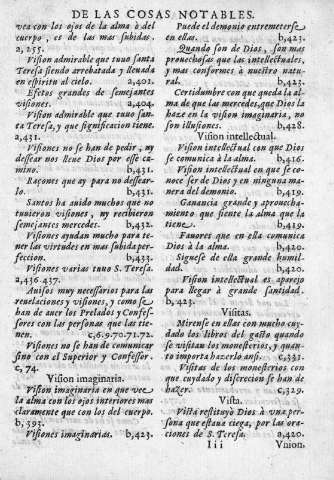 DE LAS COSAS NOTABLES.
vea con los ojos de la alma ò del
cuerpo, es de las mas subidas.
a, 255.
Vision admirable que tuuo santa
Teresa siendo arrebatada y lleuada
en espiritu al cielo. a,402.
Efetos grandes de semejantes
visiones. a,404.
Vision admirable que tuuo san-
ta Teresa, y que significacion tiene.
a,431.
Visiones no se han de pedir, ny
dessear nos lleue Dios por esse ca-
mino. b,431.
Raçones que ay para no dessear-
lo. b,431.
Santos ha auido muchos que no
tuuieron visiones, ny recibieron
semejantes mercedes. b,432.
Visiones ayudan mucho para te-
ner las virtudes en mas subida per-
feccion. b,433.
Visiones varias tuuo S. Teresa.
a,436.437.
Auisos muy necessarios para las
reuelaciones y visiones, y como se
han de auer los Prelados y Confes-
sores con las personas que las tie-
nen. c,6.9.70.71.72.
Visiones no se han de comunicar
sino con el Superior y Confessor.
c, 74.
Vision imaginaria.
Vision imaginaria en que vee
la alma con los ojos interiores mas
claramente que con los del cuerpo.
b, 393.
Visiones imaginarias. b,423.
Puede el demonio entremeterse
en ellas. b,423.
Quando son de Dios, son mas
prouechosas que las intellectuales,
y mas conformes à nuestro natu-
ral. b,423.
Certidumbre con que queda la al-
ma de que las mercedes, que Dios la
haze en la vision imaginaria, no
son illusiones. b,428.
Vision intellectual.
Vision intellectual con que Dios
se comunica à la alma. b,416.
Vision intellectual en que se co-
noce ser de Dios y en ninguna ma-
nera del demonio. b,419.
Ganancia grande y aprouecha-
miento que siente la alma que la
tiene. b,419.
Fauores que en ella comunica
Dios à la alma. b,420.
Siguese de ella grande humil-
dad. b,420.
Vision intellectual es aparejo
para llegar à grande santidad.
b,423.
Visitas.
Mirense en ellas con mucho cuy-
dado los libros del gasto quando
se visitan los monesterios, y quan-
to importa hazerlo ansi. c,331.
Visitas de los monesterios con
que cuydado y discrecion se han de
hazer. c,329.
Vista.
Vista restituyò Dios à vna per-
sona que estaua ciega, por las ora-
ciones de S. Teresa. a,420.
Iii Vnion.